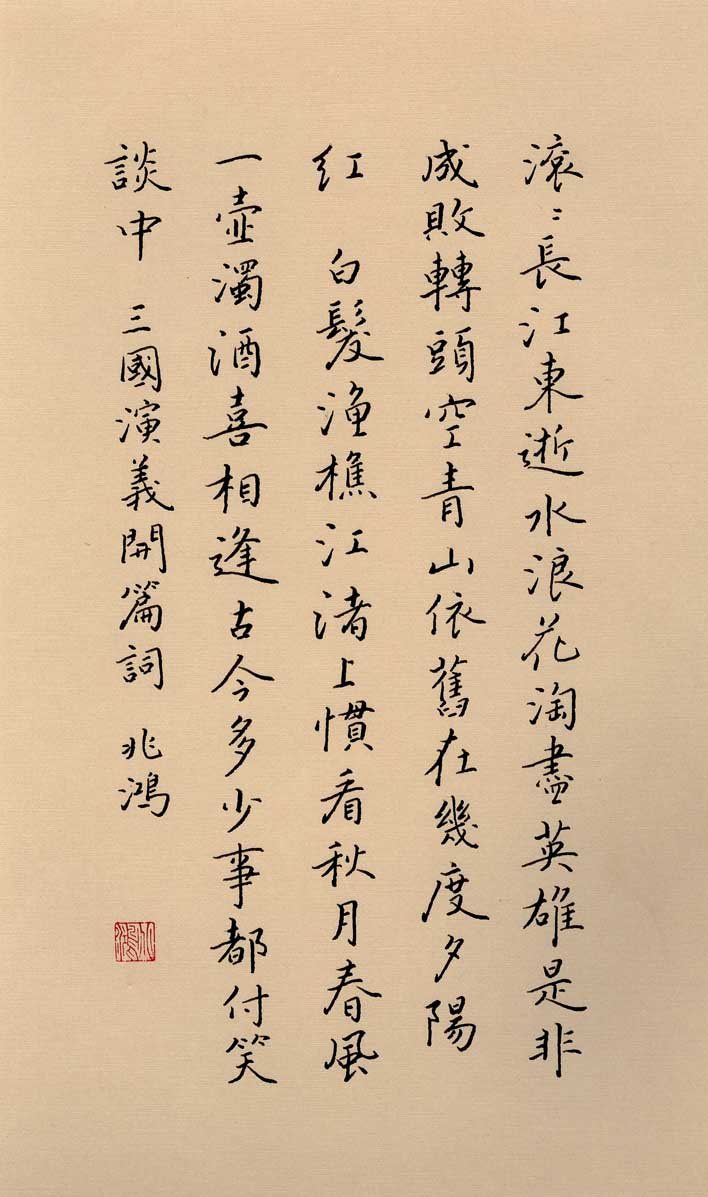 滾〻長江東逝水浪花淘盡英雄是非
成敗轉頭空青山依舊在幾度夕陽
紅 白髮漁樵江渚上慣看秋月春風
一壺濁酒喜相逢古今多少事都付笑
談中 三國演義開篇詞 兆鴻
兆鴻